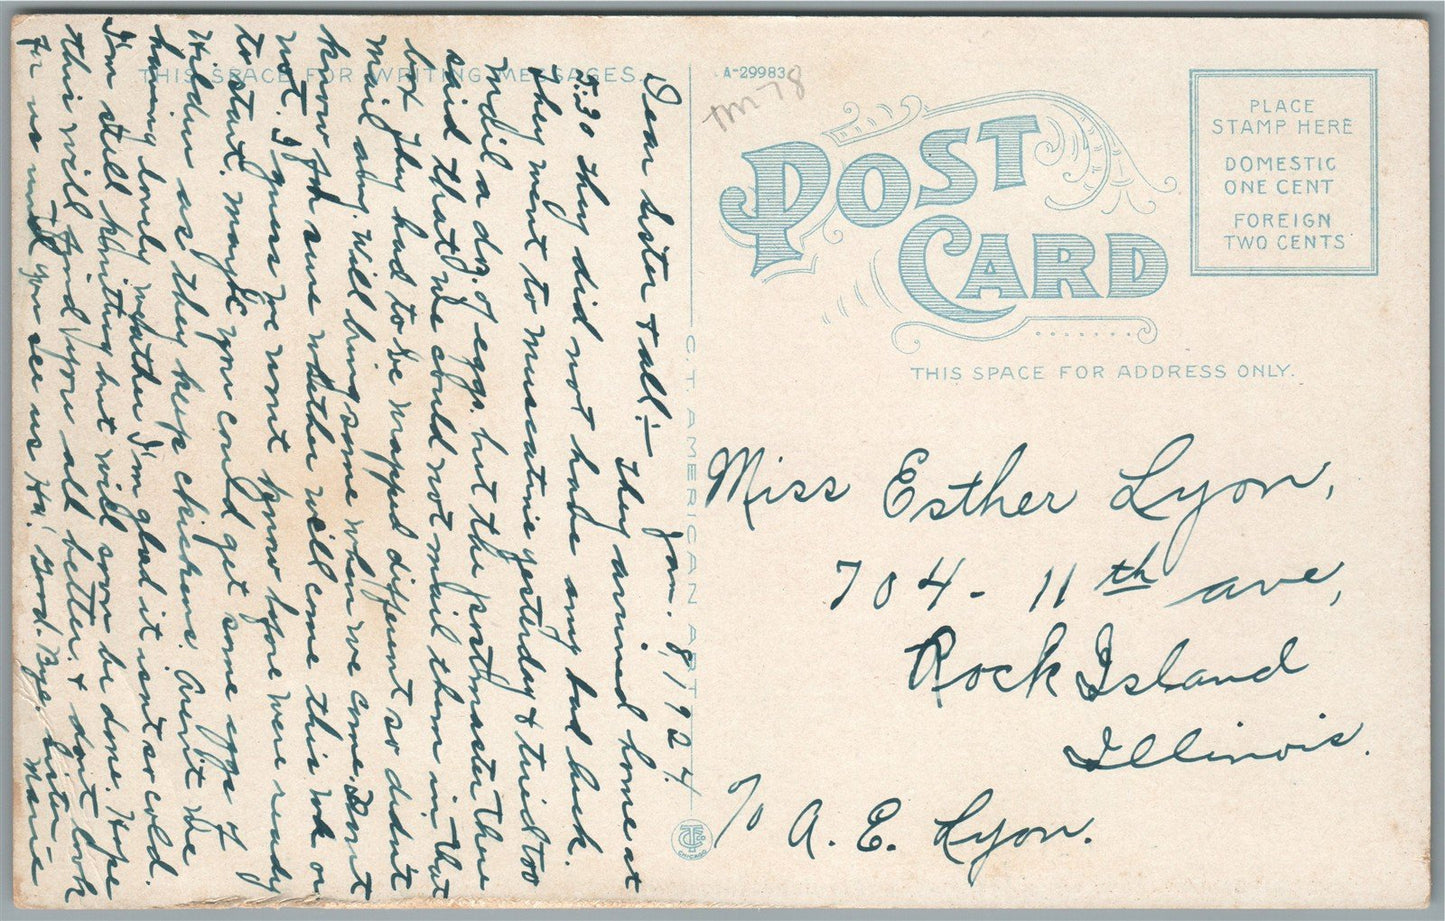 THIS SPACE FOR WRITING MESSAGES.
Jan. 8, 1924
Dear Sister & all:— They arrived home at
5:30 they did not have any bad luck.
They went to Muscatine yesterday & tried too
mail a doz. of eggs. but the postmaster there
said that we could not mail them in that
box they had to be wrapped different so didn't
mail any. Will bring some when we come. Don't
know for sure whether will come this wk or
not. I guess we wont know before were ready
to start. maybe you could get some eggs of
Hilden as they keep chickens. Aren't we
having lovely weather I'm glad it isn't so cold.
I'm still hunting but will soon be done. Hope
this will find you all better. & don't look
for us until you see us Ha! Good. Bye. Sister
Marie
C. T. AMERICAN ART
CHICAGO
A-29983
TM-78
POST
CARD
PLACE
STAMP HERE
DOMESTIC
ONE CENT
FOREIGN
TWO CENTS
THIS SPACE FOR ADDRESS ONLY.
Miss Esther Lyon,
704- 11th ave,
Rock Island
Illinois.
% A. E. Lyon.